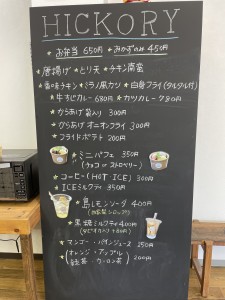 HICKORY
★お弁当 650円 ★おかずのみ 450円
★唐揚げ ★とり天 ★チキン南蛮
★香味チキン ★ミラノ風カツ ★白身フライ(タルタル付)
★牛すじカレー 680円 ★カツカレー 780円
★からあげ 袋入り 300円
★からあげ オニオンフライ 300円
★フライドポテト 200円
★ミニパフェ 350円
(チョコ or ストロベリー)
★コーヒー(HOT ICE) 300円
★ICEミルクティ 350円
★島レモンソーダ 400円
(自家製シロップ)
★黒糖ミルクティ 400円
★マンゴー・パインジュース 250円
(オレンジ・アップル
紅茶・ウーロン茶) 200円